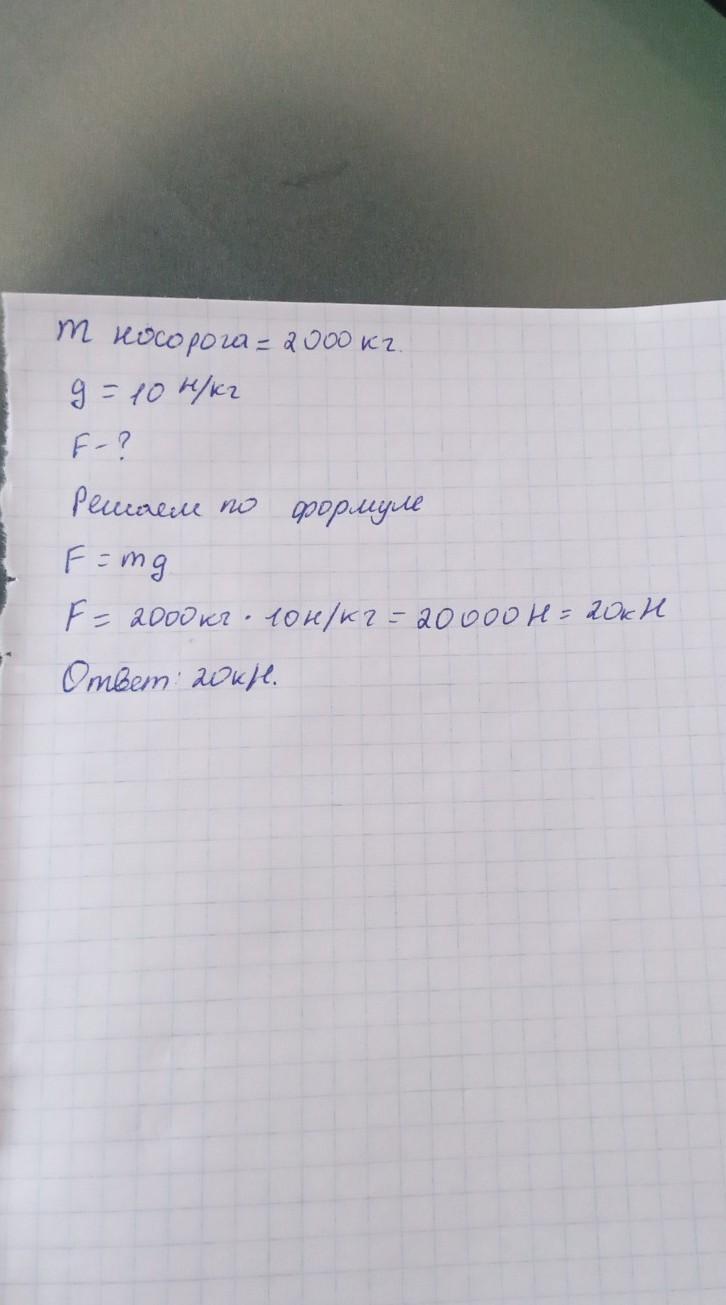 m носорога = 2000 кг.
g = 10 н/кг
F - ?
Решаем по формуле
F = mg
F = 2000кг · 10н/кг = 20000Н = 20кН
Ответ: 20кН.